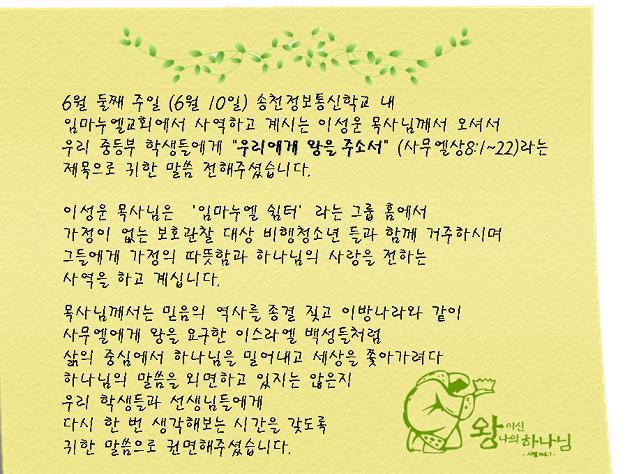 6월 둘째 주일 (6월 10일) 송천정보통신학교 내
임마누엘교회에서 사역하고 계시는 이성운 목사님께서 오셔서
우리 중등부 학생들에게 "우리에게 왕을 주소서" (사무엘상8:1~22)라는
제목으로 귀한 말씀 전해주셨습니다.
이성운 목사님은 '임마누엘 쉼터' 라는 그룹 홈에서
가정이 없는 보호관찰 대상 비행청소년 들과 함께 거주하시며
그들에게 가정의 따뜻함과 하나님의 사랑을 전하는
사역을 하고 계십니다.
목사님께서는 믿음의 역사를 종결 짓고 이방나라와 같이
사무엘에게 왕을 요구한 이스라엘 백성들처럼
삶의 중심에서 하나님을 밀어내고 세상을 쫓아가려다
하나님의 말씀을 외면하고 있지는 않은지
우리 학생들과 선생님들에게
다시 한 번 생각해보는 시간을 갖도록
귀한 말씀으로 권면해주셨습니다.
왕이신
나의 하나님